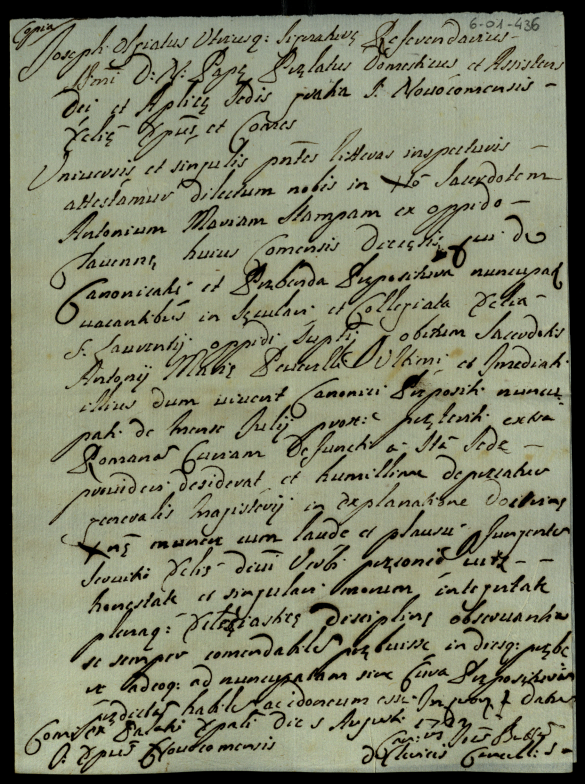 6-01-436
Copia
Joseph Olgiatus Utriusq: Signaturę Referendarius
SSmi D: N: Papę Prelatus Domesticus et Assistens
Dei et Aplicę Sedis gratia S. Novocomensis
Ecclię Epus, et Comes
Universis et singulis pntes litteras inspecturis
attestamur dilectum nobis in Xto Sacerdotem
Antonium Mariam Stampam ex oppido
Clavennę huius Comensis Dioecesis, qui de
Canonicatu et Prębenda Prępositura nuncupat
vacantibus in seculari et Collegiata Ecclia
S. Laurentij oppidi supti obitum Sacerdotis
Antonij Marię Ultimi et Imediati
illius dum viveret Canonici Prępositi nuncu
pati de mense Julij prox:e pręteriti extra
Romanam Curiam defuncti a Sta Sede
provideri desiderat et humillime deprecatur
generalis Magisterij in explanatione doctrinę
Xnę munere cum laude et plausu
Divi Verbi
honestate et singulari morum integritate
plenaq: Ecclesiasticę disciplinę observantia
se semper comendabilem prębuisse in diesq: prębe
re adeoq: ad nuncupatam sine Cura Pręposituram
prędictam habilem ac idoneum esse In quor
Comi ex Palatio Epali die 5 Augusti
J. Epus Novocomensis